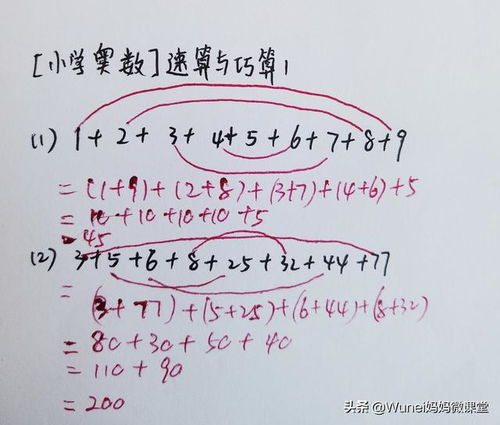 [小学奥数]速算与巧算1
(1) 1+2+3+4+5+6+7+8+9
=(1+9)+(2+8)+(3+7)+(4+6)+5
=10+10+10+10+5
=45
(2) 3+5+6+8+25+32+44+77
=
(3+77)+(5+25)+(6+44)+(8+32)
=80+30+50+40
=110+90
=200
头条 @Wunei妈妈微课堂